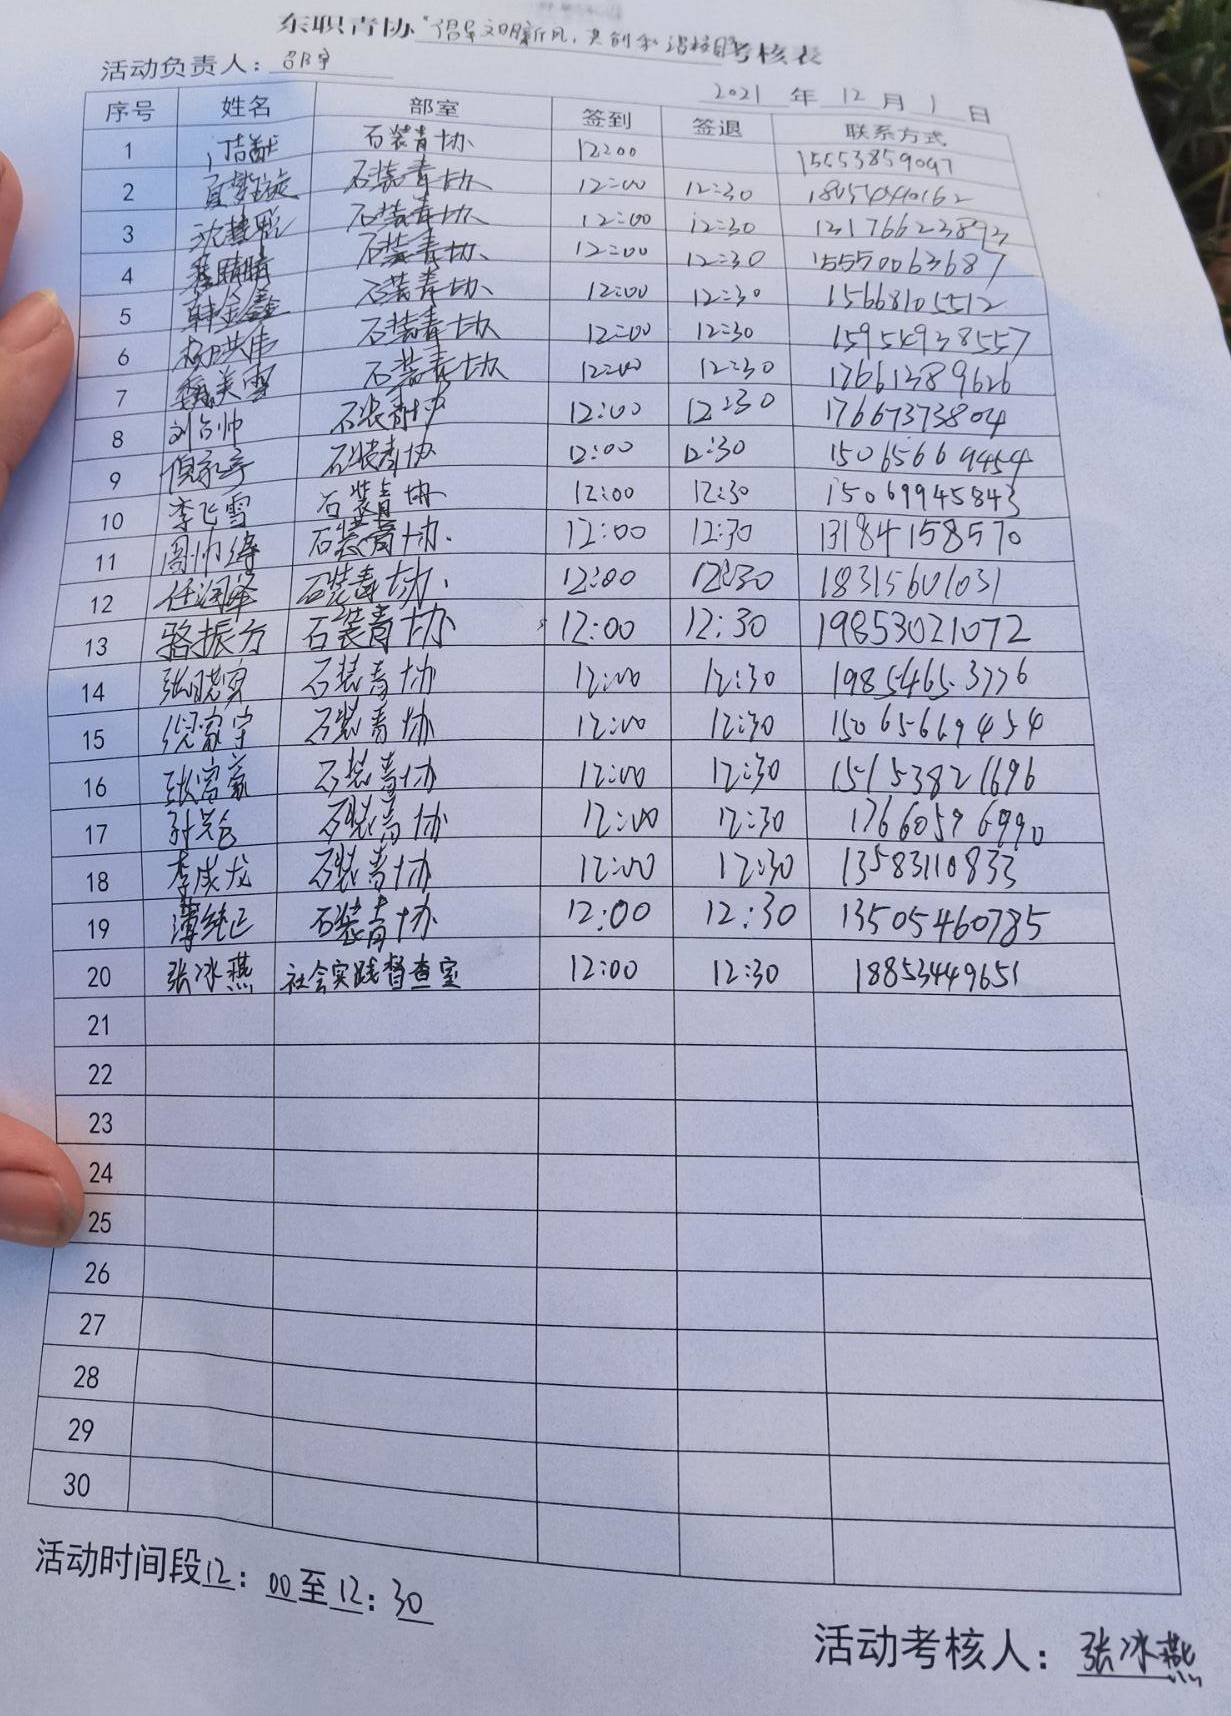 东职青协"倡导文明新风,共创和谐校园"考核表
活动负责人: 邵宇
2021 年 12 月 1 日
序号 姓名 部室 签到 签退 联系方式
1 石装青协 12:00 15553859097
2 石装青协 12:00 12:30
3 沈慧彩 石装青协 12:00 12:30 13176623893
4 晴晴 石装青协 12:00 12:30 15550063687
5 韩金鑫 石装青协 12:00 12:30 15668105512
6 杨洪伟 石装青协 12:00 12:30 15954938557
7 魏美雪 石装青协 12:00 12:30 17661389626
8 石装青协 12:00 12:30 17667373804
9 倪家宇 石装青协 12:00 12:30 15065669454
10 李飞雪 石装青协 12:00 12:30 15069945843
11 石装青协. 12:00 12:30 13184158570
12 任润泽 石装青协. 12:00 12:30 18315601031
13 骆振方 石装青协 12:00 12:30 19853021072
14 张晓寅 石装青协 12:00 12:30 19854653776
15 倪家宇 石装青协 12:00 12:30 15065669454
16 石装青协 12:00 12:30 15153821696
17 石装青协 12:00 12:30 17660596990
18 李成龙 石装青协 12:00 12:30 13583110833
19 薄纯正 石装青协 12:00 12:30 13505460785
20 张冰燕 社会实践督查室 12:00 12:30 18853449651
21
22
23
24
25
26
27
28
29
30
活动时间段12:00至12:30
活动考核人:张冰燕